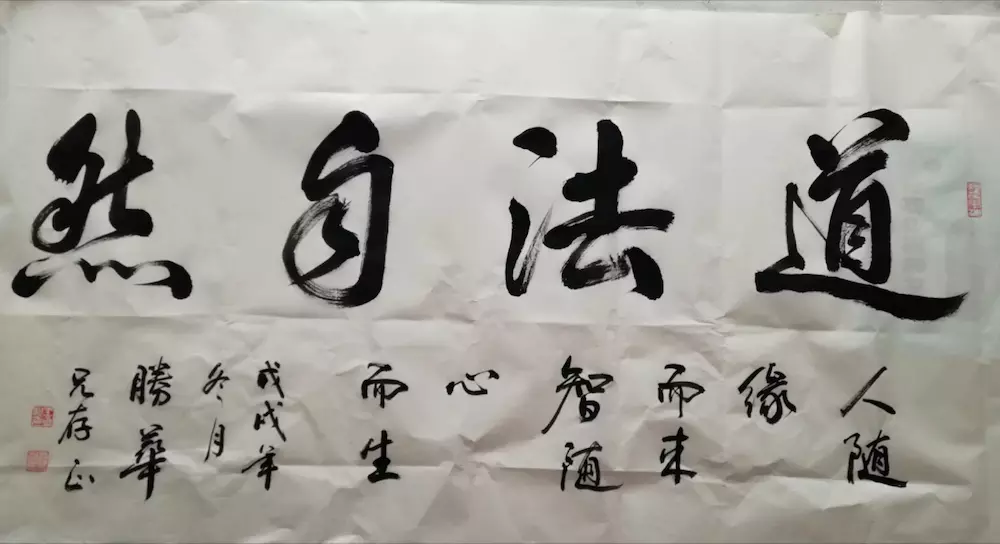 道法自然
人随
缘
而来
智随
心
而生
戊戌年
冬月
勝華
兄存正